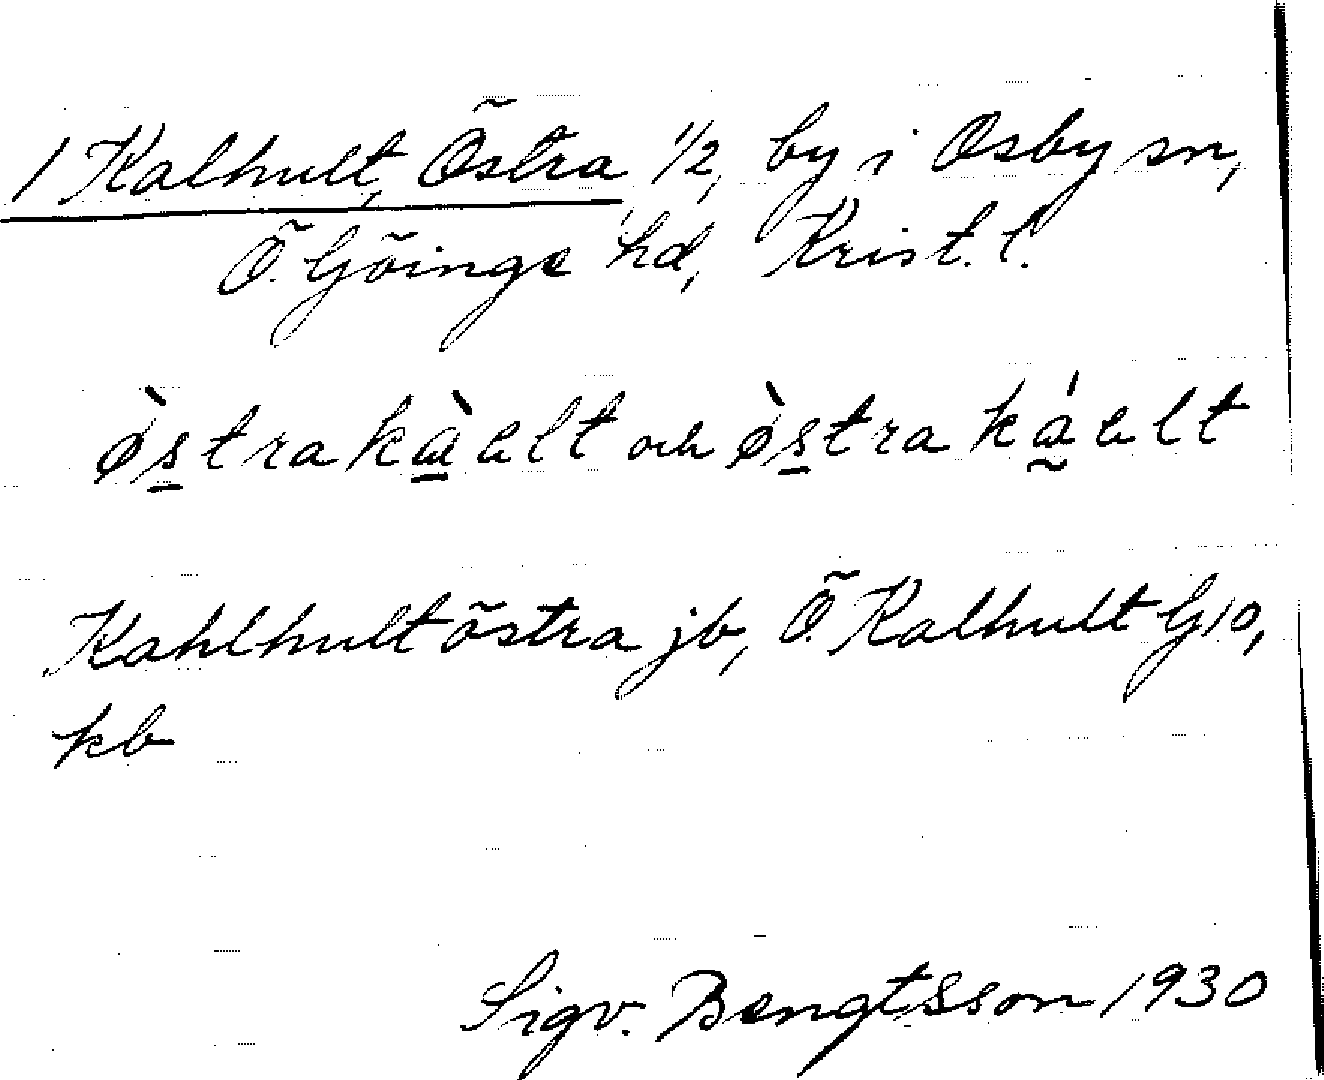 1 Kalhult, Östra 1/2, by i Osby sn,
Ö. Göinge hd, Krist. l.
østra kàelt och østra káelt
Kahlhult östra jb, Ö. Kalhult G10,
kb
Sigv. Bengtsson 1930